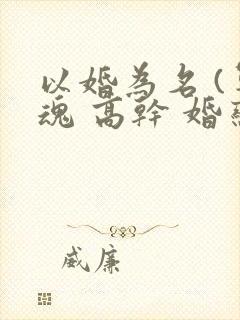 以婚為名(
魂 高幹 婚
威廉